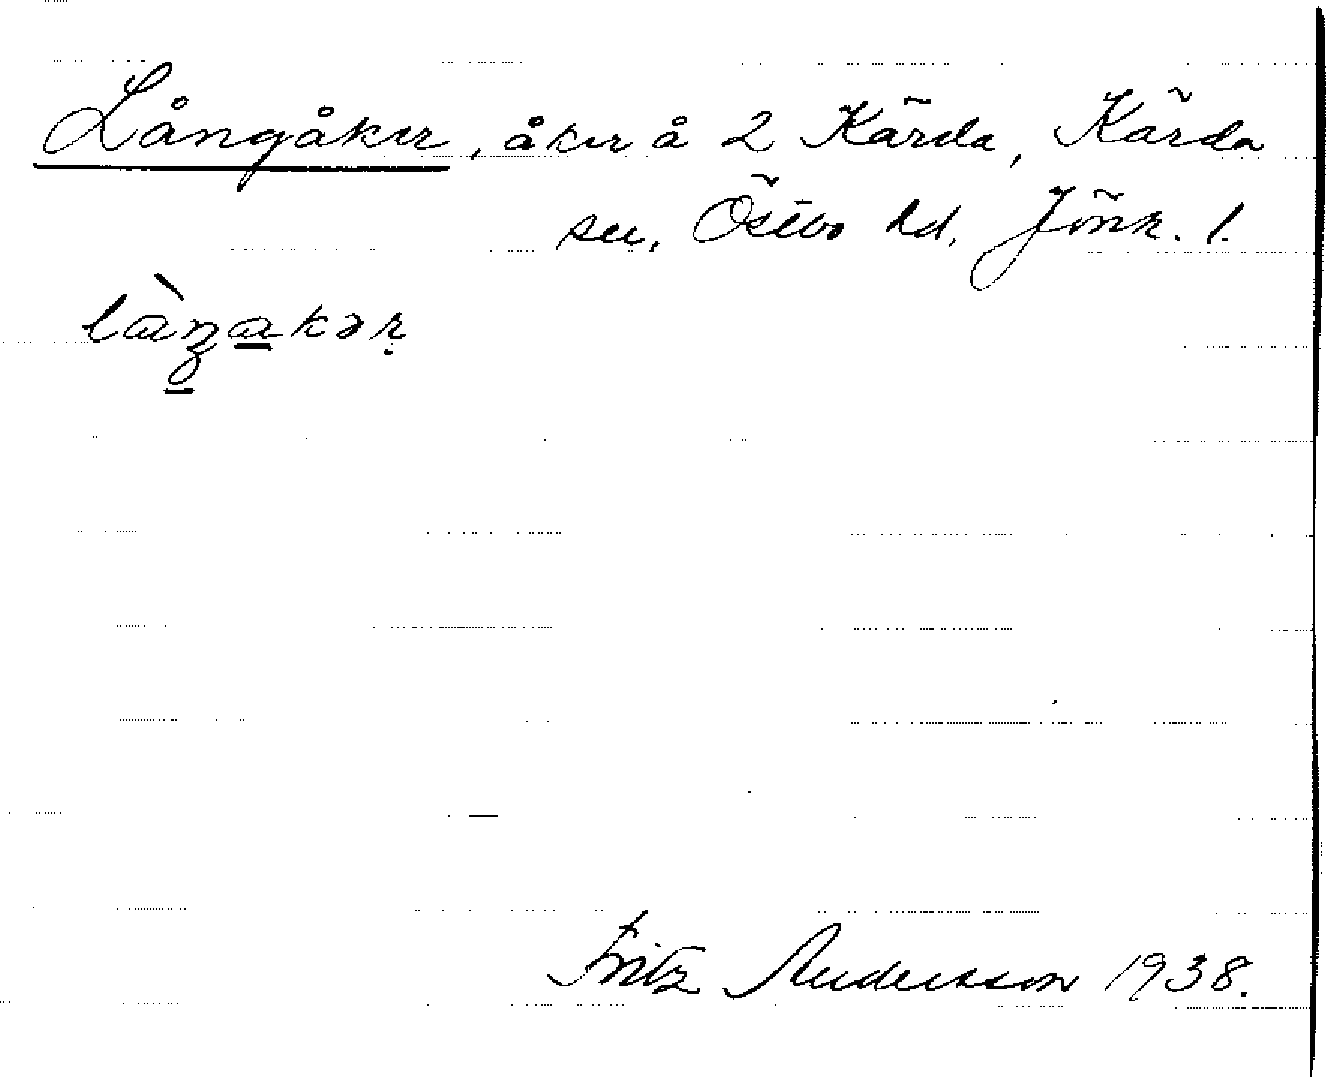 Långåker, åker å 2 Kärda, Kärda
sn, Östbo hd, Jönk. l.
Fritz Andersson 1938.